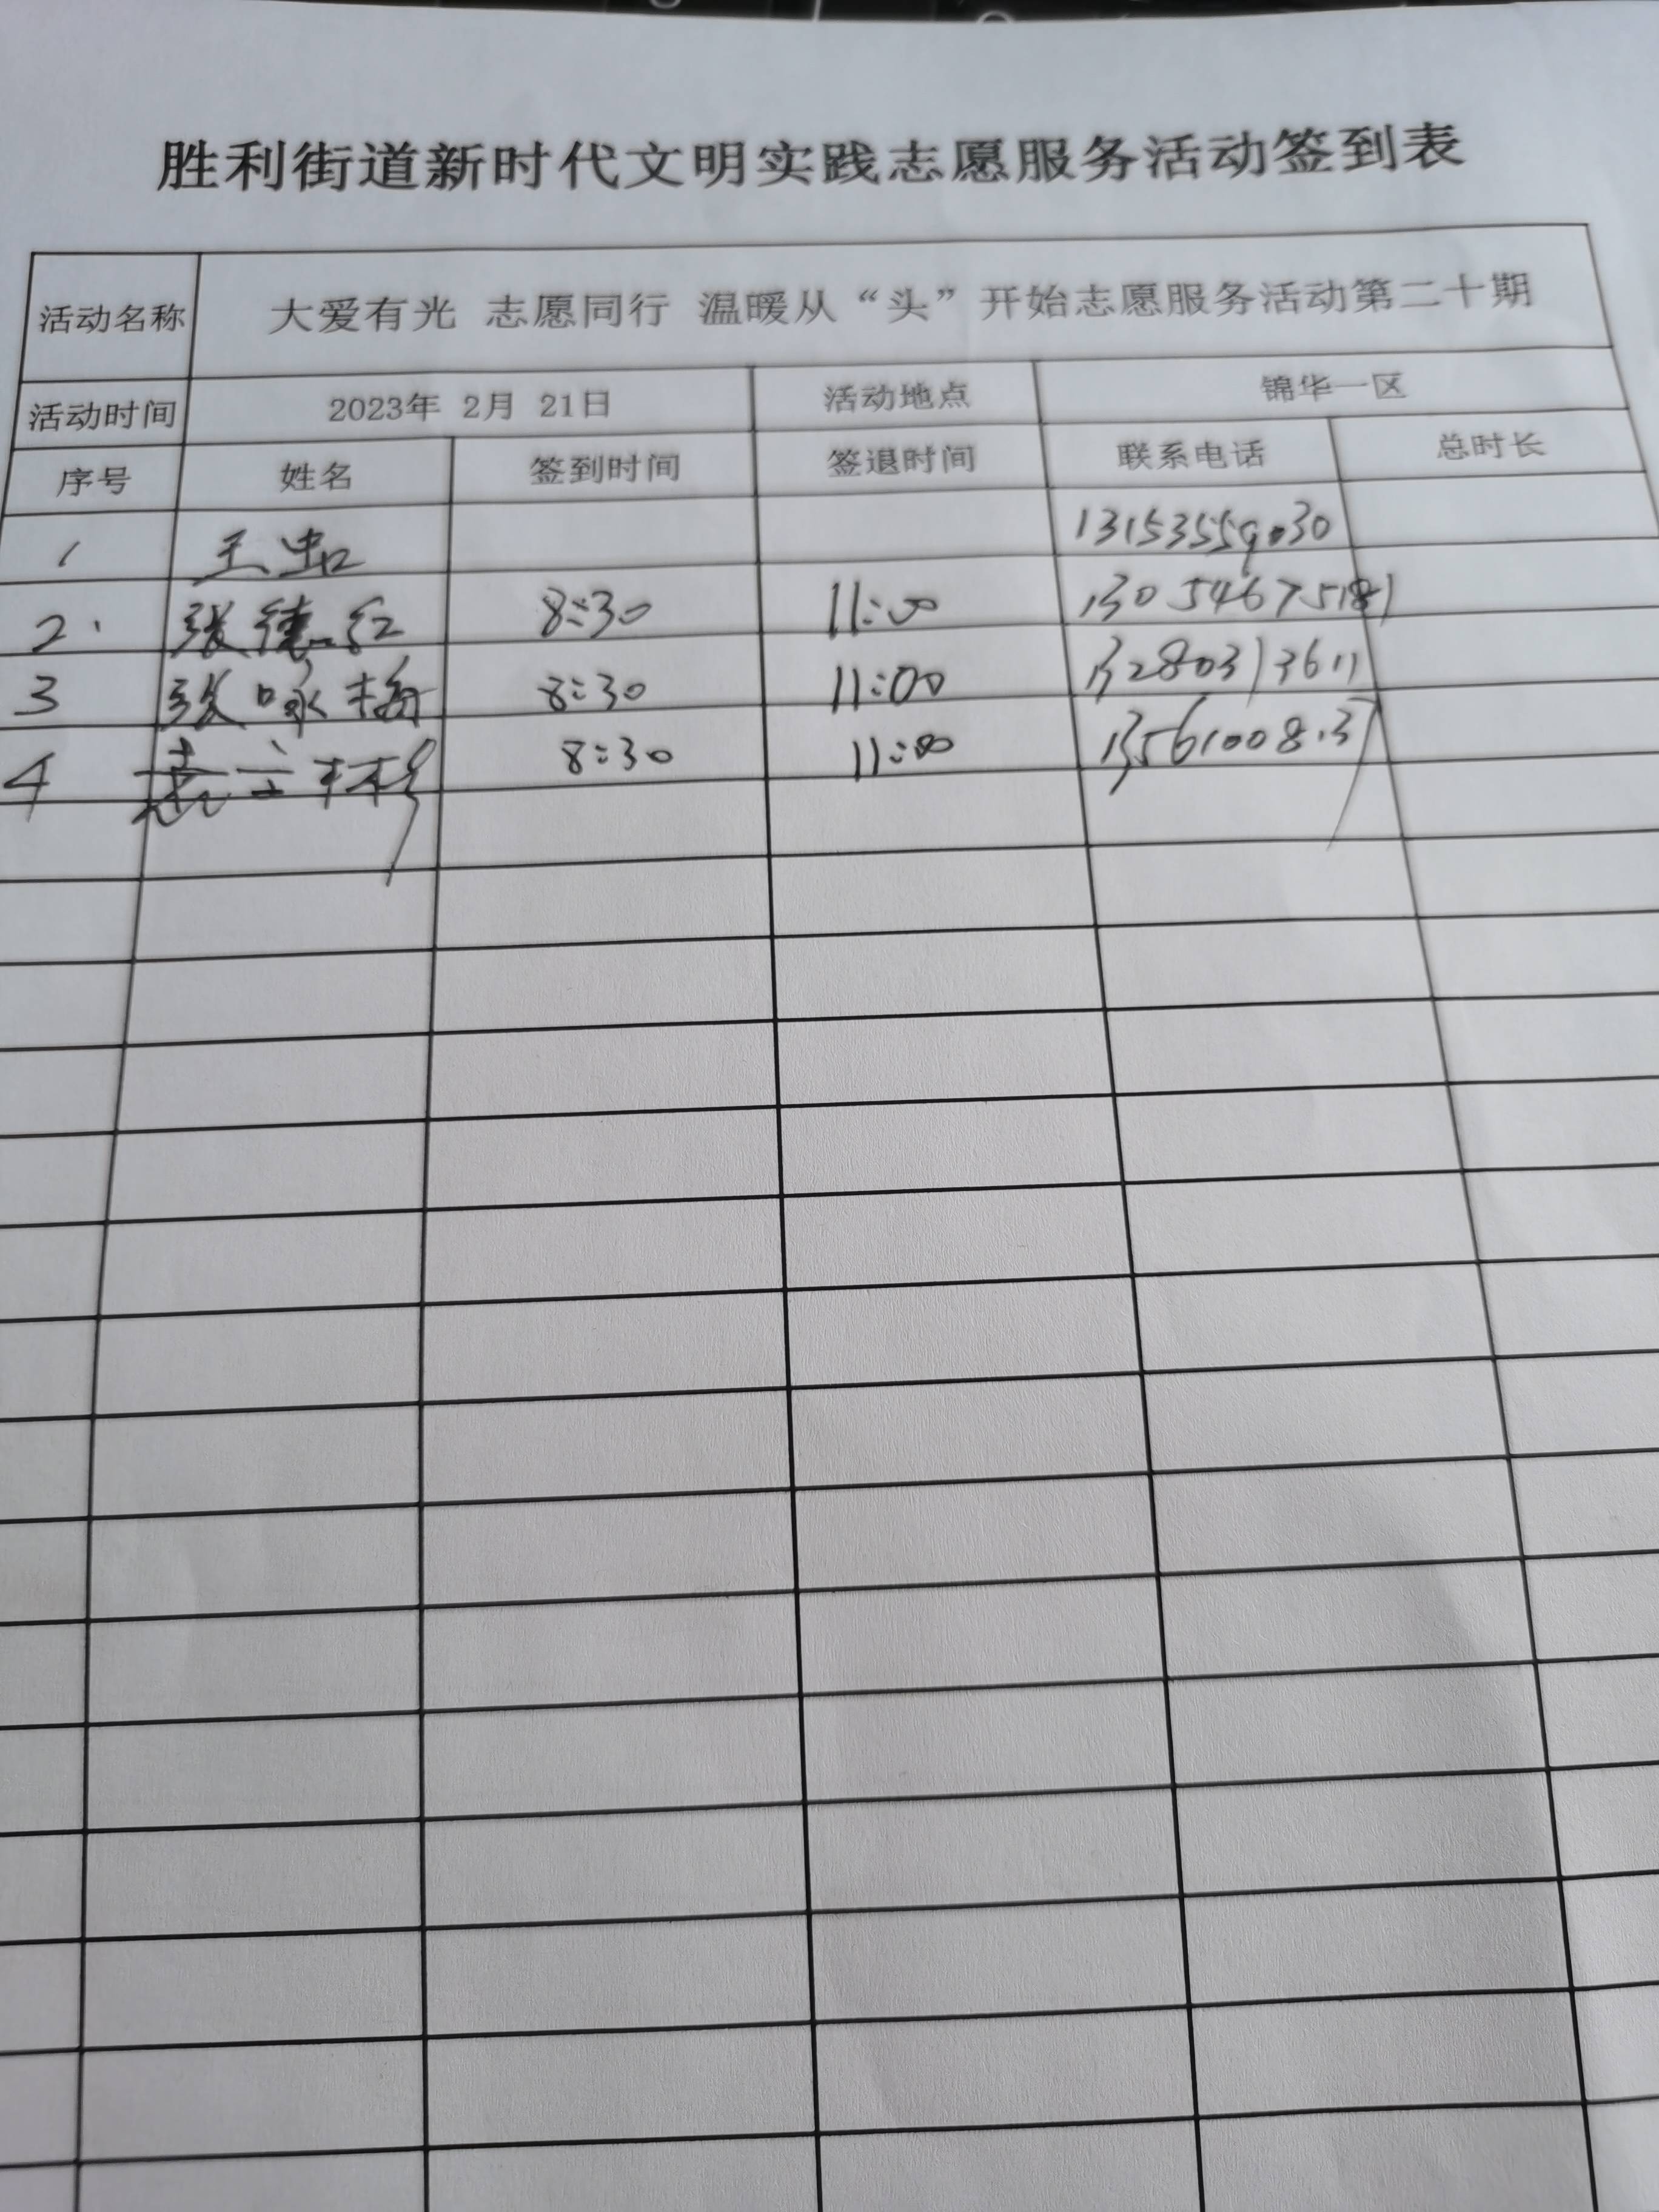 胜利街道新时代文明实践志愿服务活动签到表
活动名称 大爱有光 志愿同行 温暖从“头”开始志愿服务活动第二十期
活动时间 2023年 2月 21日 活动地点 锦华一区
序号 姓名 签到时间 签退时间 联系电话 总时长
1 王 13153559030
2 张德红 8:30 11:00 13054675181
3 张咏梅 8:30 11:00 13280313611
4 袁立彬 8:30 11:00